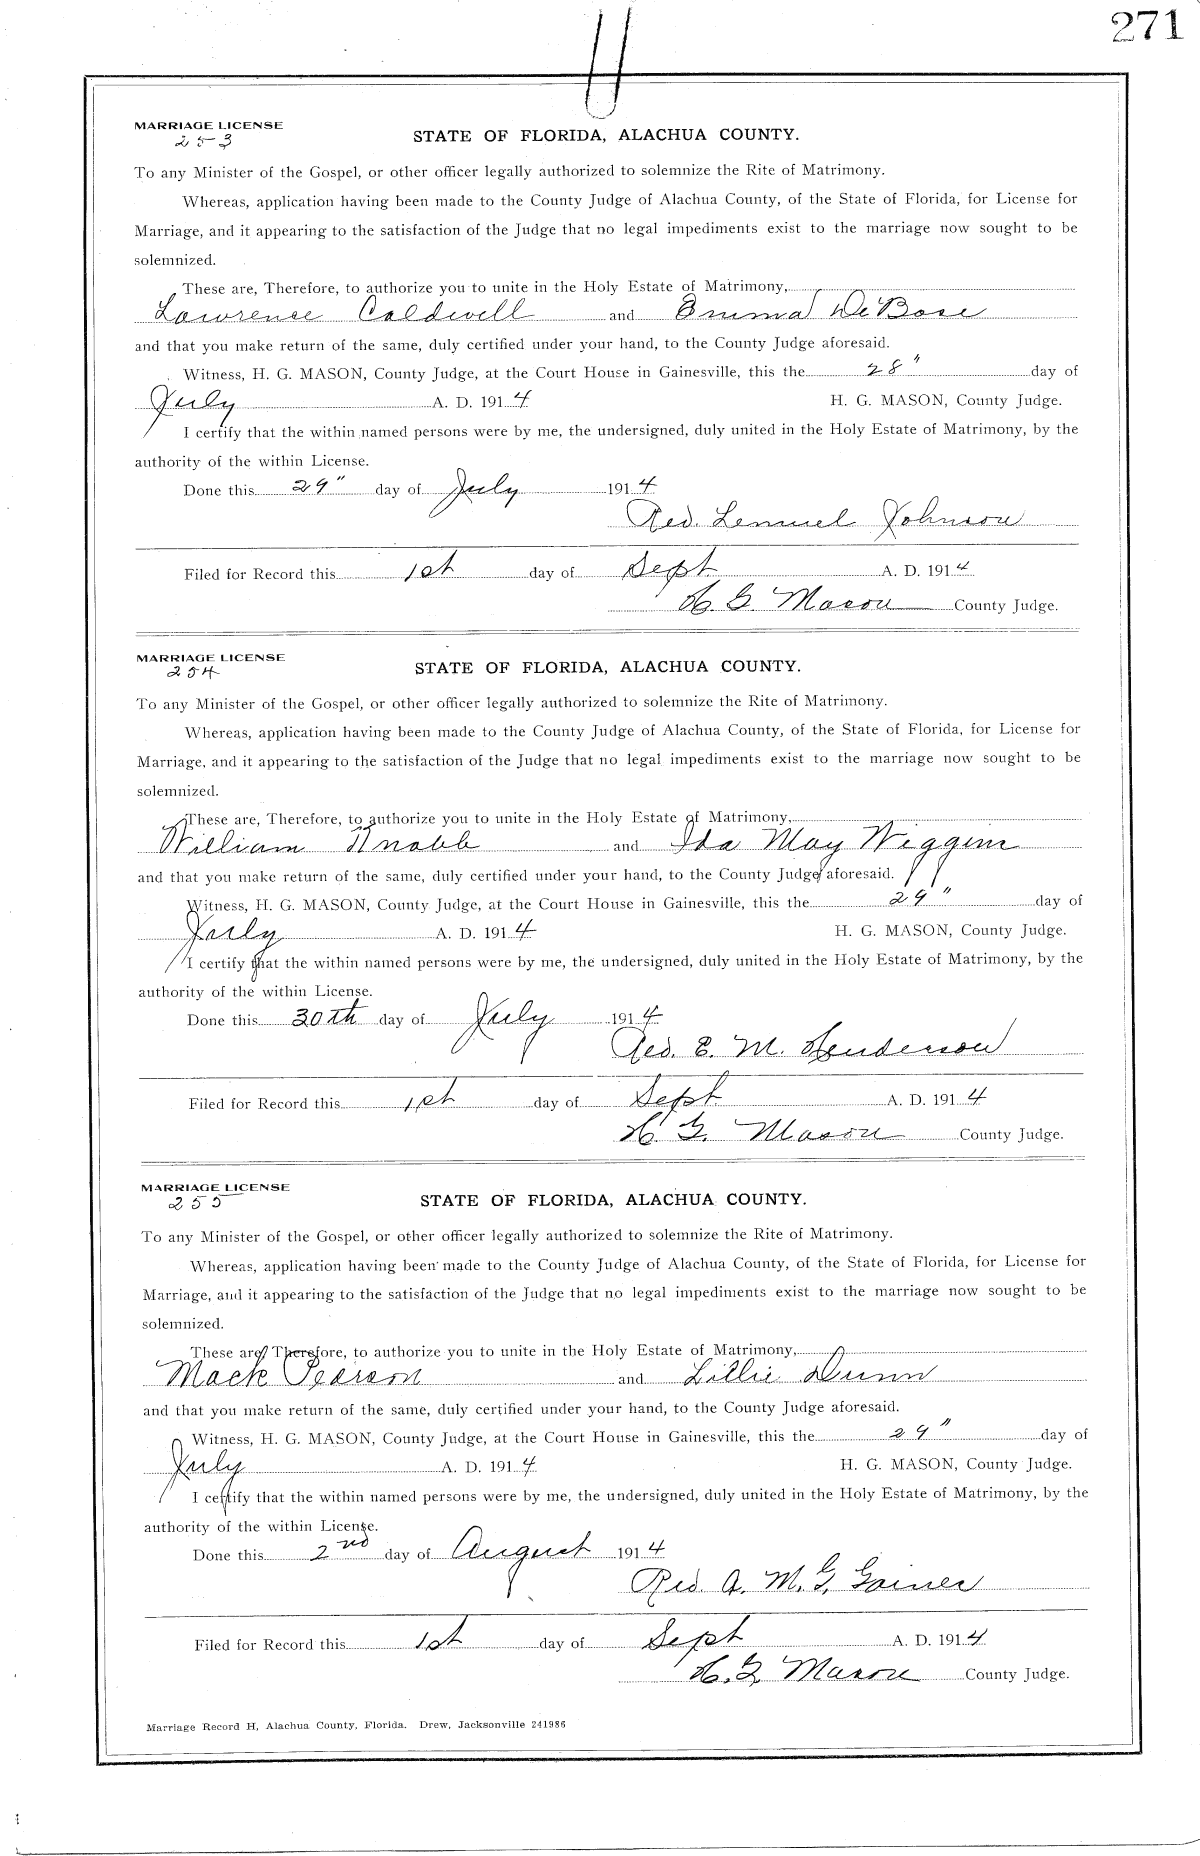 271
MARRIAGE LICENSE
253
STATE OF FLORIDA, ALACHUA COUNTY.
To any Minister of the Gospel, or other officer legally authorized to solemnize the Rite of Matrimony.
Whereas, application having been made to the County Judge of Alachua County, of the State of Florida, for License for
Marriage, and it appearing to the satisfaction of the Judge that no legal impediments exist to the marriage now sought to be
solemnized.
These are, Therefore, to authorize you to unite in the Holy Estate of Matrimony,
Lawrense Caldwell and Emma DeBose
and that you make return of the same, duly certified under your hand, to the County Judge aforesaid.
Witness, H. G. MASON, County Judge, at the Court House in Gainesville, this the 28" day of
July A. D. 1914 H. G. MASON, County Judge.
I certify that the within named persons were by me, the undersigned, duly united in the Holy Estate of Matrimony, by the
authority of the within License.
Done this 29" day of July 1914
Rev. Lemuel Johnson
Filed for Record this 1st day of Sept A. D. 1914
H. G. Mason County Judge.
MARRIAGE LICENSE
254
STATE OF FLORIDA, ALACHUA COUNTY.
To any Minister of the Gospel, or other officer legally authorized to solemnize the Rite of Matrimony.
Whereas, application having been made to the County Judge of Alachua County, of the State of Florida, for License for
Marriage, and it appearing to the satisfaction of the Judge that no legal impediments exist to the marriage now sought to be
solemnized.
These are, Therefore, to authorize you to unite in the Holy Estate of Matrimony,
William Knabb and Ida May Wiggins
and that you make return of the same, duly certified under your hand, to the County Judge aforesaid.
Witness, H. G. MASON, County Judge, at the Court House in Gainesville, this the 29" day of
July A. D. 1914 H. G. MASON, County Judge.
I certify that the within named persons were by me, the undersigned, duly united in the Holy Estate of Matrimony, by the
authority of the within License.
Done this 30th day of July 1914
Rev. E. M. Henderson
Filed for Record this 1st day of Sept A. D. 1914
H. G. Mason County Judge.
MARRIAGE LICENSE
255
STATE OF FLORIDA, ALACHUA COUNTY.
To any Minister of the Gospel, or other officer legally authorized to solemnize the Rite of Matrimony.
Whereas, application having been made to the County Judge of Alachua County, of the State of Florida, for License for
Marriage, and it appearing to the satisfaction of the Judge that no legal impediments exist to the marriage now sought to be
solemnized.
These are, Therefore, to authorize you to unite in the Holy Estate of Matrimony,
Mack Pearson and Lillie Dunn
and that you make return of the same, duly certified under your hand, to the County Judge aforesaid.
Witness, H. G. MASON, County Judge, at the Court House in Gainesville, this the 29" day of
July A. D. 1914 H. G. MASON, County Judge.
I certify that the within named persons were by me, the undersigned, duly united in the Holy Estate of Matrimony, by the
authority of the within License.
Done this 2nd day of August 1914
Rev. A. M. G. Gainer
Filed for Record this 1st day of Sept A. D. 1914
H. G. Mason County Judge.
Marriage Record H, Alachua County, Florida. Drew, Jacksonville 241986